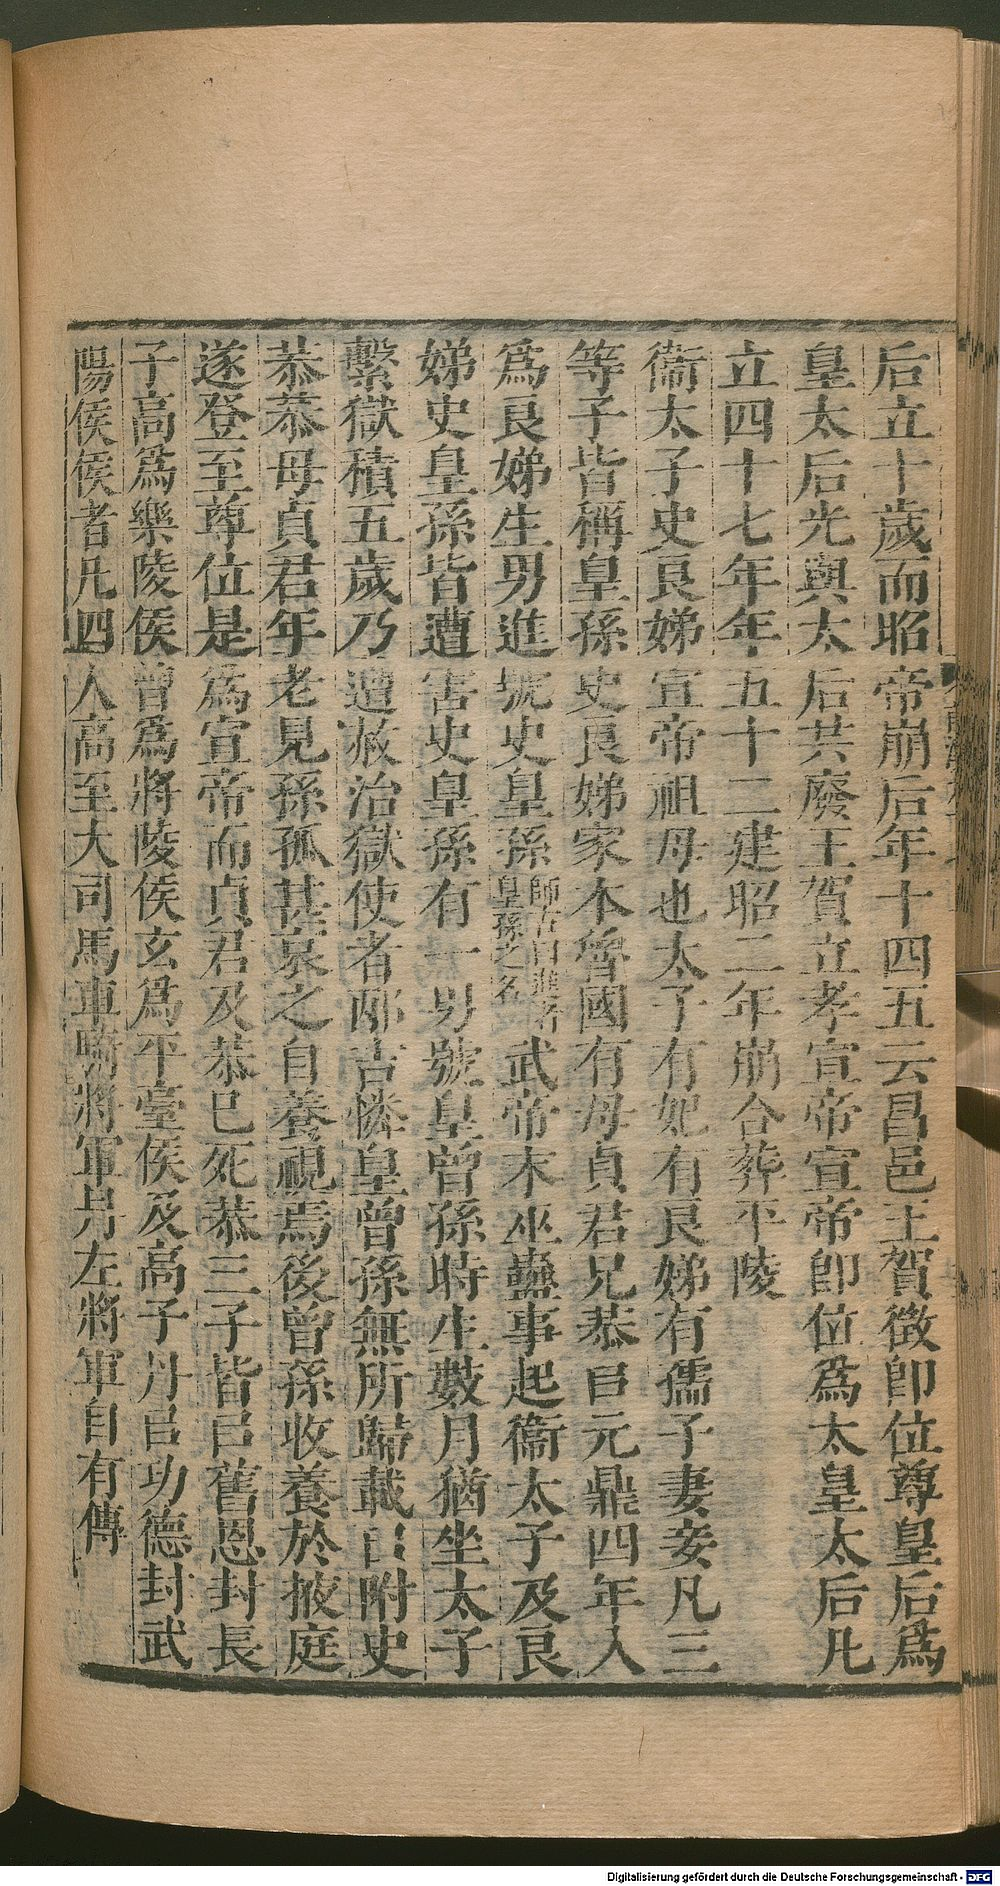 后立十歲而昭帝崩后年十四五云昌邑王賀徵卽位尊皇后爲
皇太后光與太后共廢王賀立孝宣帝宣帝卽位爲太皇太后凡
立四十七年年五十二建昭二年崩合葬平陵
衞太子史良娣宣帝祖母也太子有妃有良娣有孺子妻妾凡三
等子皆稱皇孫史良娣家本魯國有母貞君兄恭㠯元鼎四年入
爲良娣生男進號史皇孫師古曰進者皇孫之名武帝末巫蠱事起衞太子及良
娣史皇孫皆遭害史皇孫有一男號皇曾孫時生數月猶坐太子
繫獄積五歲乃遭赦治獄使者邴吉憐皇曾孫無所歸載㠯附史
恭恭母貞君年老見孫孤甚哀之自養視焉後曾孫收養於掖庭
遂登至尊位是爲宣帝而貞君及恭已死恭三子皆㠯舊恩封長
子高爲樂陵侯曾爲將陵侯玄爲平臺侯及高子丹㠯功德封武
陽侯侯者凡四人高至大司馬車騎將軍丹左將軍自有傳
Digitalisierung gefördert durch die Deutsche Forschungsgemeinschaft - DFG